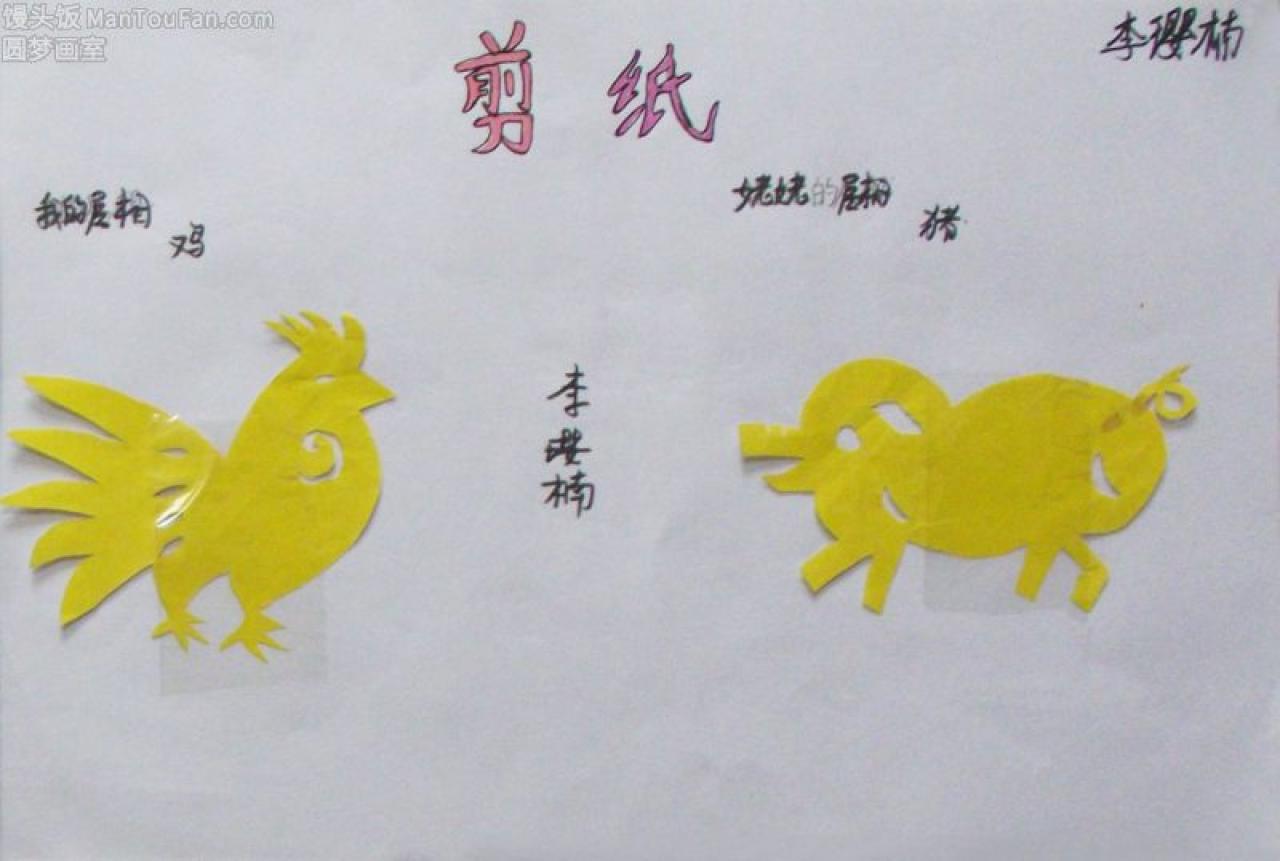 馒头饭 ManTouFan.com
圆梦画室
李璎楠
剪 纸
我的属相
鸡
姥姥的属相
猪
李
璎
楠